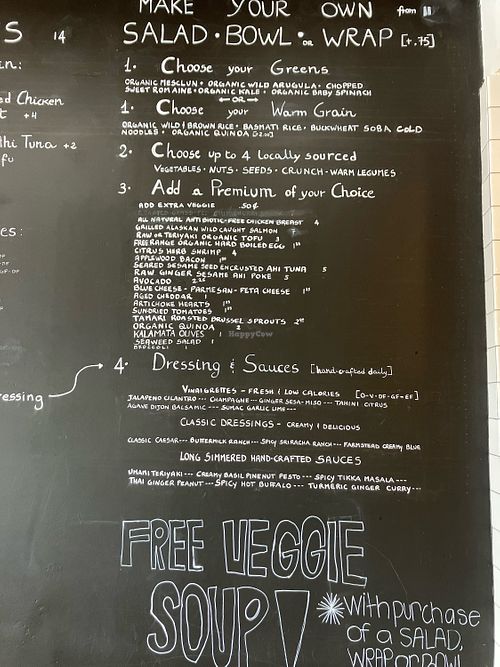 MAKE YOUR OWN from 11
SALAD • BOWL • OR WRAP [+.75]
S 14
1. Choose your Greens
ORGANIC MESCLUN • ORGANIC WILD ARUGULA • CHOPPED
SWEET ROMAINE • ORGANIC KALE • ORGANIC BABY SPINACH
OR
1. Choose your Warm Grain
ORGANIC WILD & BROWN RICE • BASMATI RICE • BUCKWHEAT SOBA COLD
NOODLES • ORGANIC QUINOA
2. Choose up to 4 locally sourced
VEGETABLES • NUTS • SEEDS • CRUNCH • WARM LEGUMES
3. Add a Premium of your Choice
ADD EXTRA VEGGIE .50¢
ALL NATURAL ANTIBIOTIC-FREE CHICKEN BREAST 4
GRILLED ALASKAN WILD CAUGHT SALMON 7
RAW OR TERIYAKI ORGANIC TOFU 3
FREE RANGE ORGANIC HARD BOILED EGG
CITRUS HERB SHRIMP 4
APPLEWOOD BACON
SEARED SESAME SEED ENCRUSTED AHI TUNA 5
RAW GINGER SESAME AHI POKE 5
AVOCADO
BLUE CHEESE - PARMESAN - FETA CHEESE
AGED CHEDDAR 1
ARTICHOKE HEARTS
SUNDRIED TOMATOES
TAMARI ROASTED BRUSSEL SPROUTS
ORGANIC QUINOA 2
KALAMATA OLIVES 1
SEAWEED SALAD 1
BROCCOLI 1
4. Dressing & Sauces [hand-crafted daily]
VINAIGRETTES - FRESH & LOW CALORIES [O-V-DF-GF-EF]
JALAPENO CILANTRO --- CHAMPAGNE --- GINGER SESA-MISO --- TAHINI CITRUS
AGAVE DIJON BALSAMIC --- SUMAC GARLIC LIME ---
CLASSIC DRESSINGS - CREAMY & DELICIOUS
CLASSIC CAESAR --- BUTTERMILK RANCH --- SPICY SRIRACHA RANCH --- FARMSTEAD CREAMY BLUE
LONG SIMMERED HAND-CRAFTED SAUCES
UMAMI TERIYAKI --- CREAMY BASIL PINENUT PESTO --- SPICY TIKKA MASALA ---
THAI GINGER PEANUT --- SPICY HOT BUFFALO --- TURMERIC GINGER CURRY ---
FREE VEGGIE
SOUP!
*With purchase
of a SALAD,
WRAP OR BOWL
ed Chicken
+4
hi Tuna +2
fu
es:
ressing
HappyCow